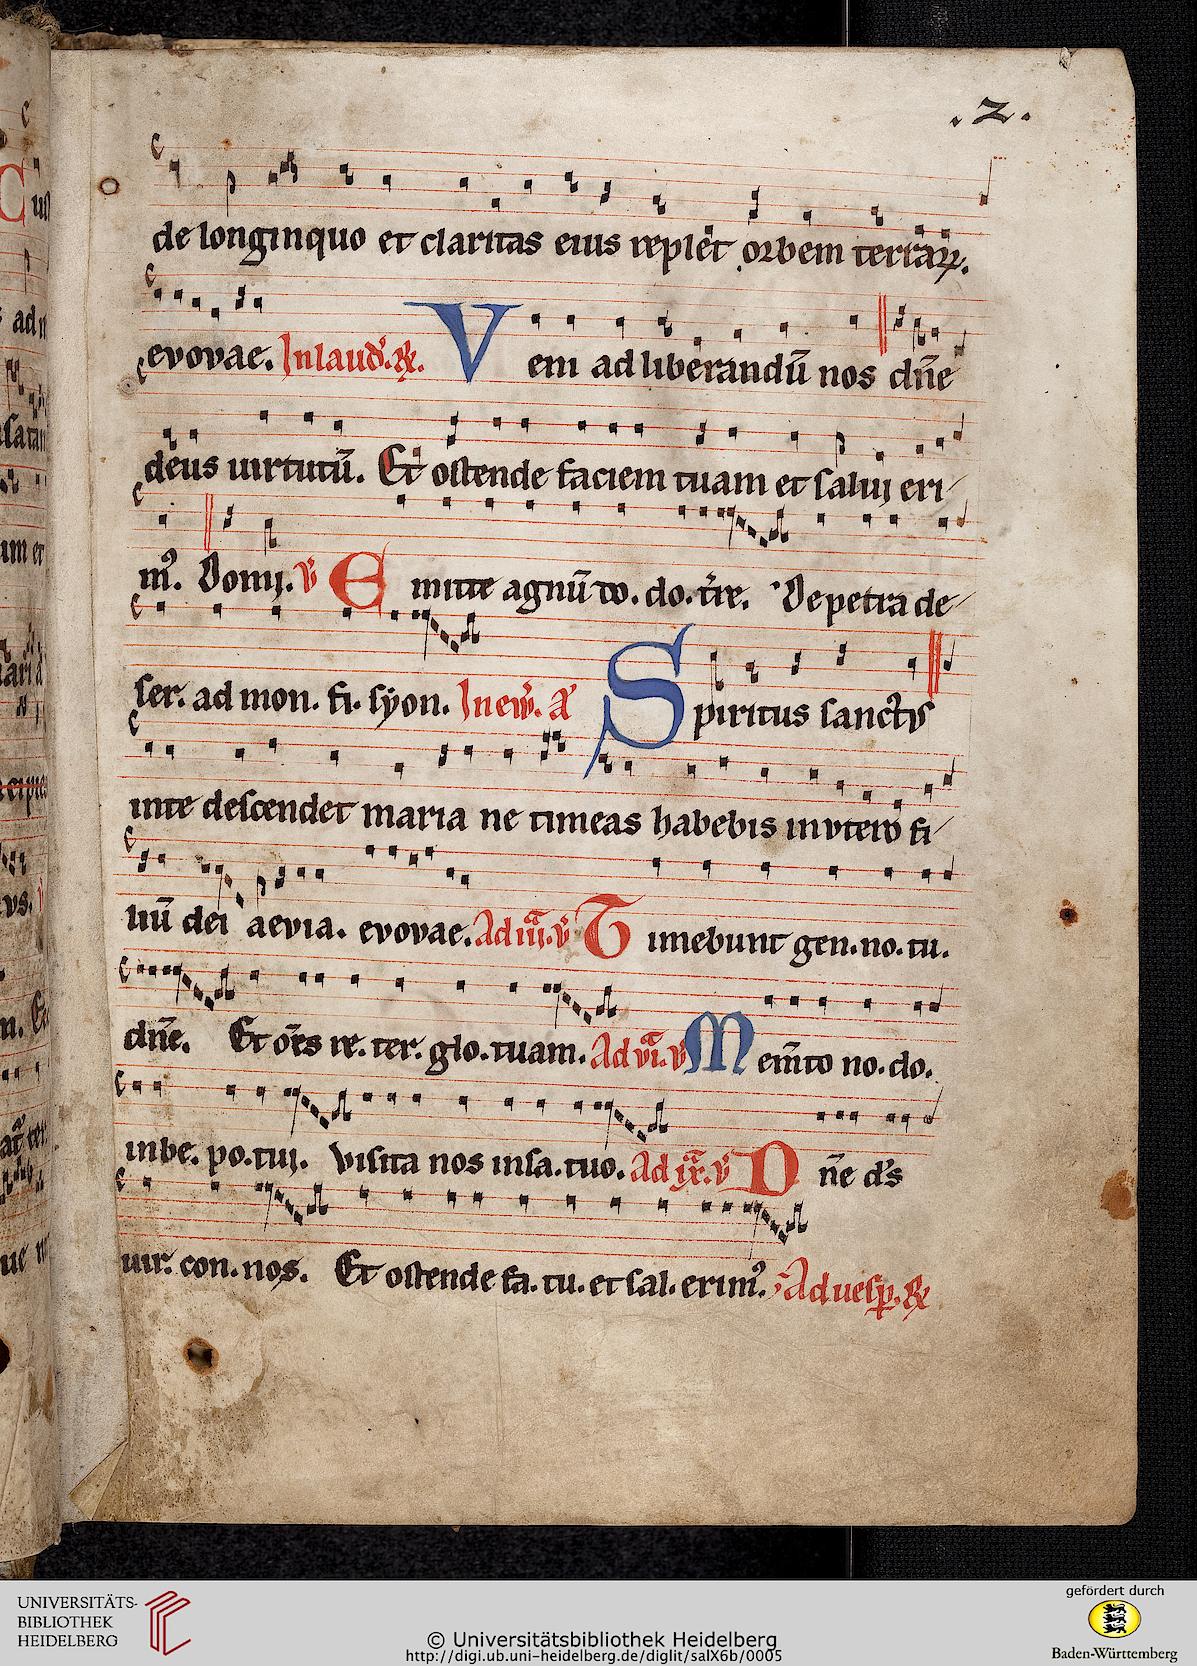 .2.
de longinquo et claritas eius replet orbem terrarꝝ.
evovae. Inlaud'. ꝶ. Veni ad liberandū nos dn̄e
deus uirtutū. Et ostende faciem tuam et salui eri
m᾽. Domi. v̄ Emitte agnū to. do. t̄re. De petra de
ser. ad mon. fi. sẏon. In ew̄. a᾽ Spiritus sanctus
inte descendet maria ne timeas habebis in vtero fi
liū dei aevia. evovae. Ad iij.ā v̄ Timebunt gen. no. tu.
dn̄e. Et om̄s re. ter. glo. tuam. Ad vi.ā v̄ Mem̄to no. do.
inbe. po. tui. Visita nos in sa. tuo. Ad ix.ā v̄ Dn̄e ds̄
uir. con. nos. Et ostende fa. tu. et sal. erim᾽. Ad uesp̄. ꝶ
UNIVERSITÄTS-
BIBLIOTHEK
HEIDELBERG
© Universitätsbibliothek Heidelberg
http://digi.ub.uni-heidelberg.de/diglit/salX6b/0005
gefördert durch
Baden-Württemberg